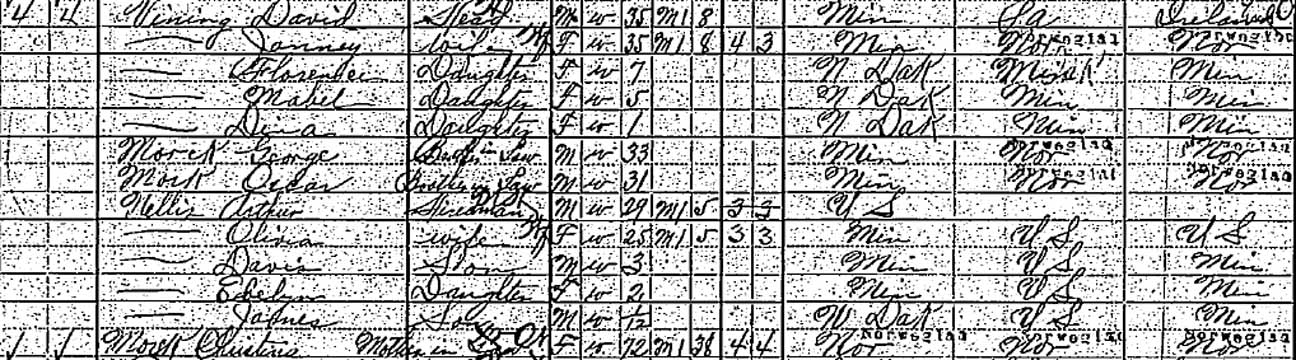 4 4 Vining David Head M W 35 M1 8 Min Pa Ireland
Janney Wife F W 35 M1 8 4 3 Min Nor Norwegian Nor Norwegian
Florence Daughter F W 7 N Dak Min Min
Mabel Daughter F W 5 N Dak Min Min
Dina Daughter F W 1 N Dak Min Min
George Brother in Law M W 33 Min Nor Norwegian Nor Norwegian
Oscar Brother in Law M W 31 Min Nor Norwegian Nor Norwegian
Nellis Arthur M W 29 M1 5 3 3 U S
Olivia Wife F W 25 M1 5 3 3 Min U S U S
Davis Son M W 3 Min U S Min
Evelyn Daughter F W 2 Min U S Min
James Son M W 1/12 N Dak U S Min
Mother in Law F W 72 M1 38 4 4 Nor Norwegian Nor Norwegian Nor Norwegian